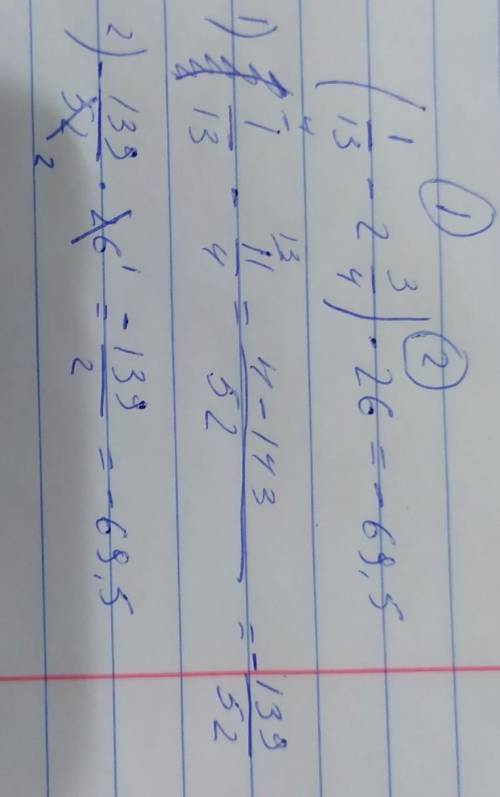 ① ②
(1/13 - 2 3/4) · 26 = -69,5
1) 1/13 - 11/4 = 4 - 143/52 = -139/52
2) -139/52 · 26 = -139/2 = -69,5